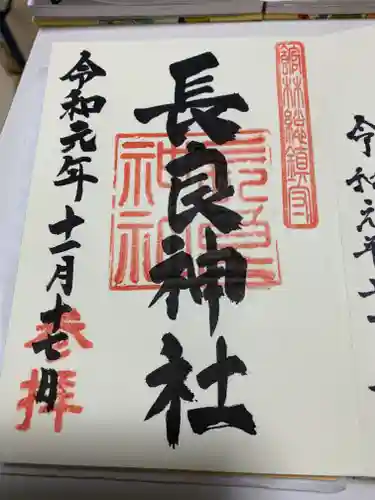 舘林総鎮守
長良神社
長良神社
奉拝
令和元年十一月十七日
令和元年十一